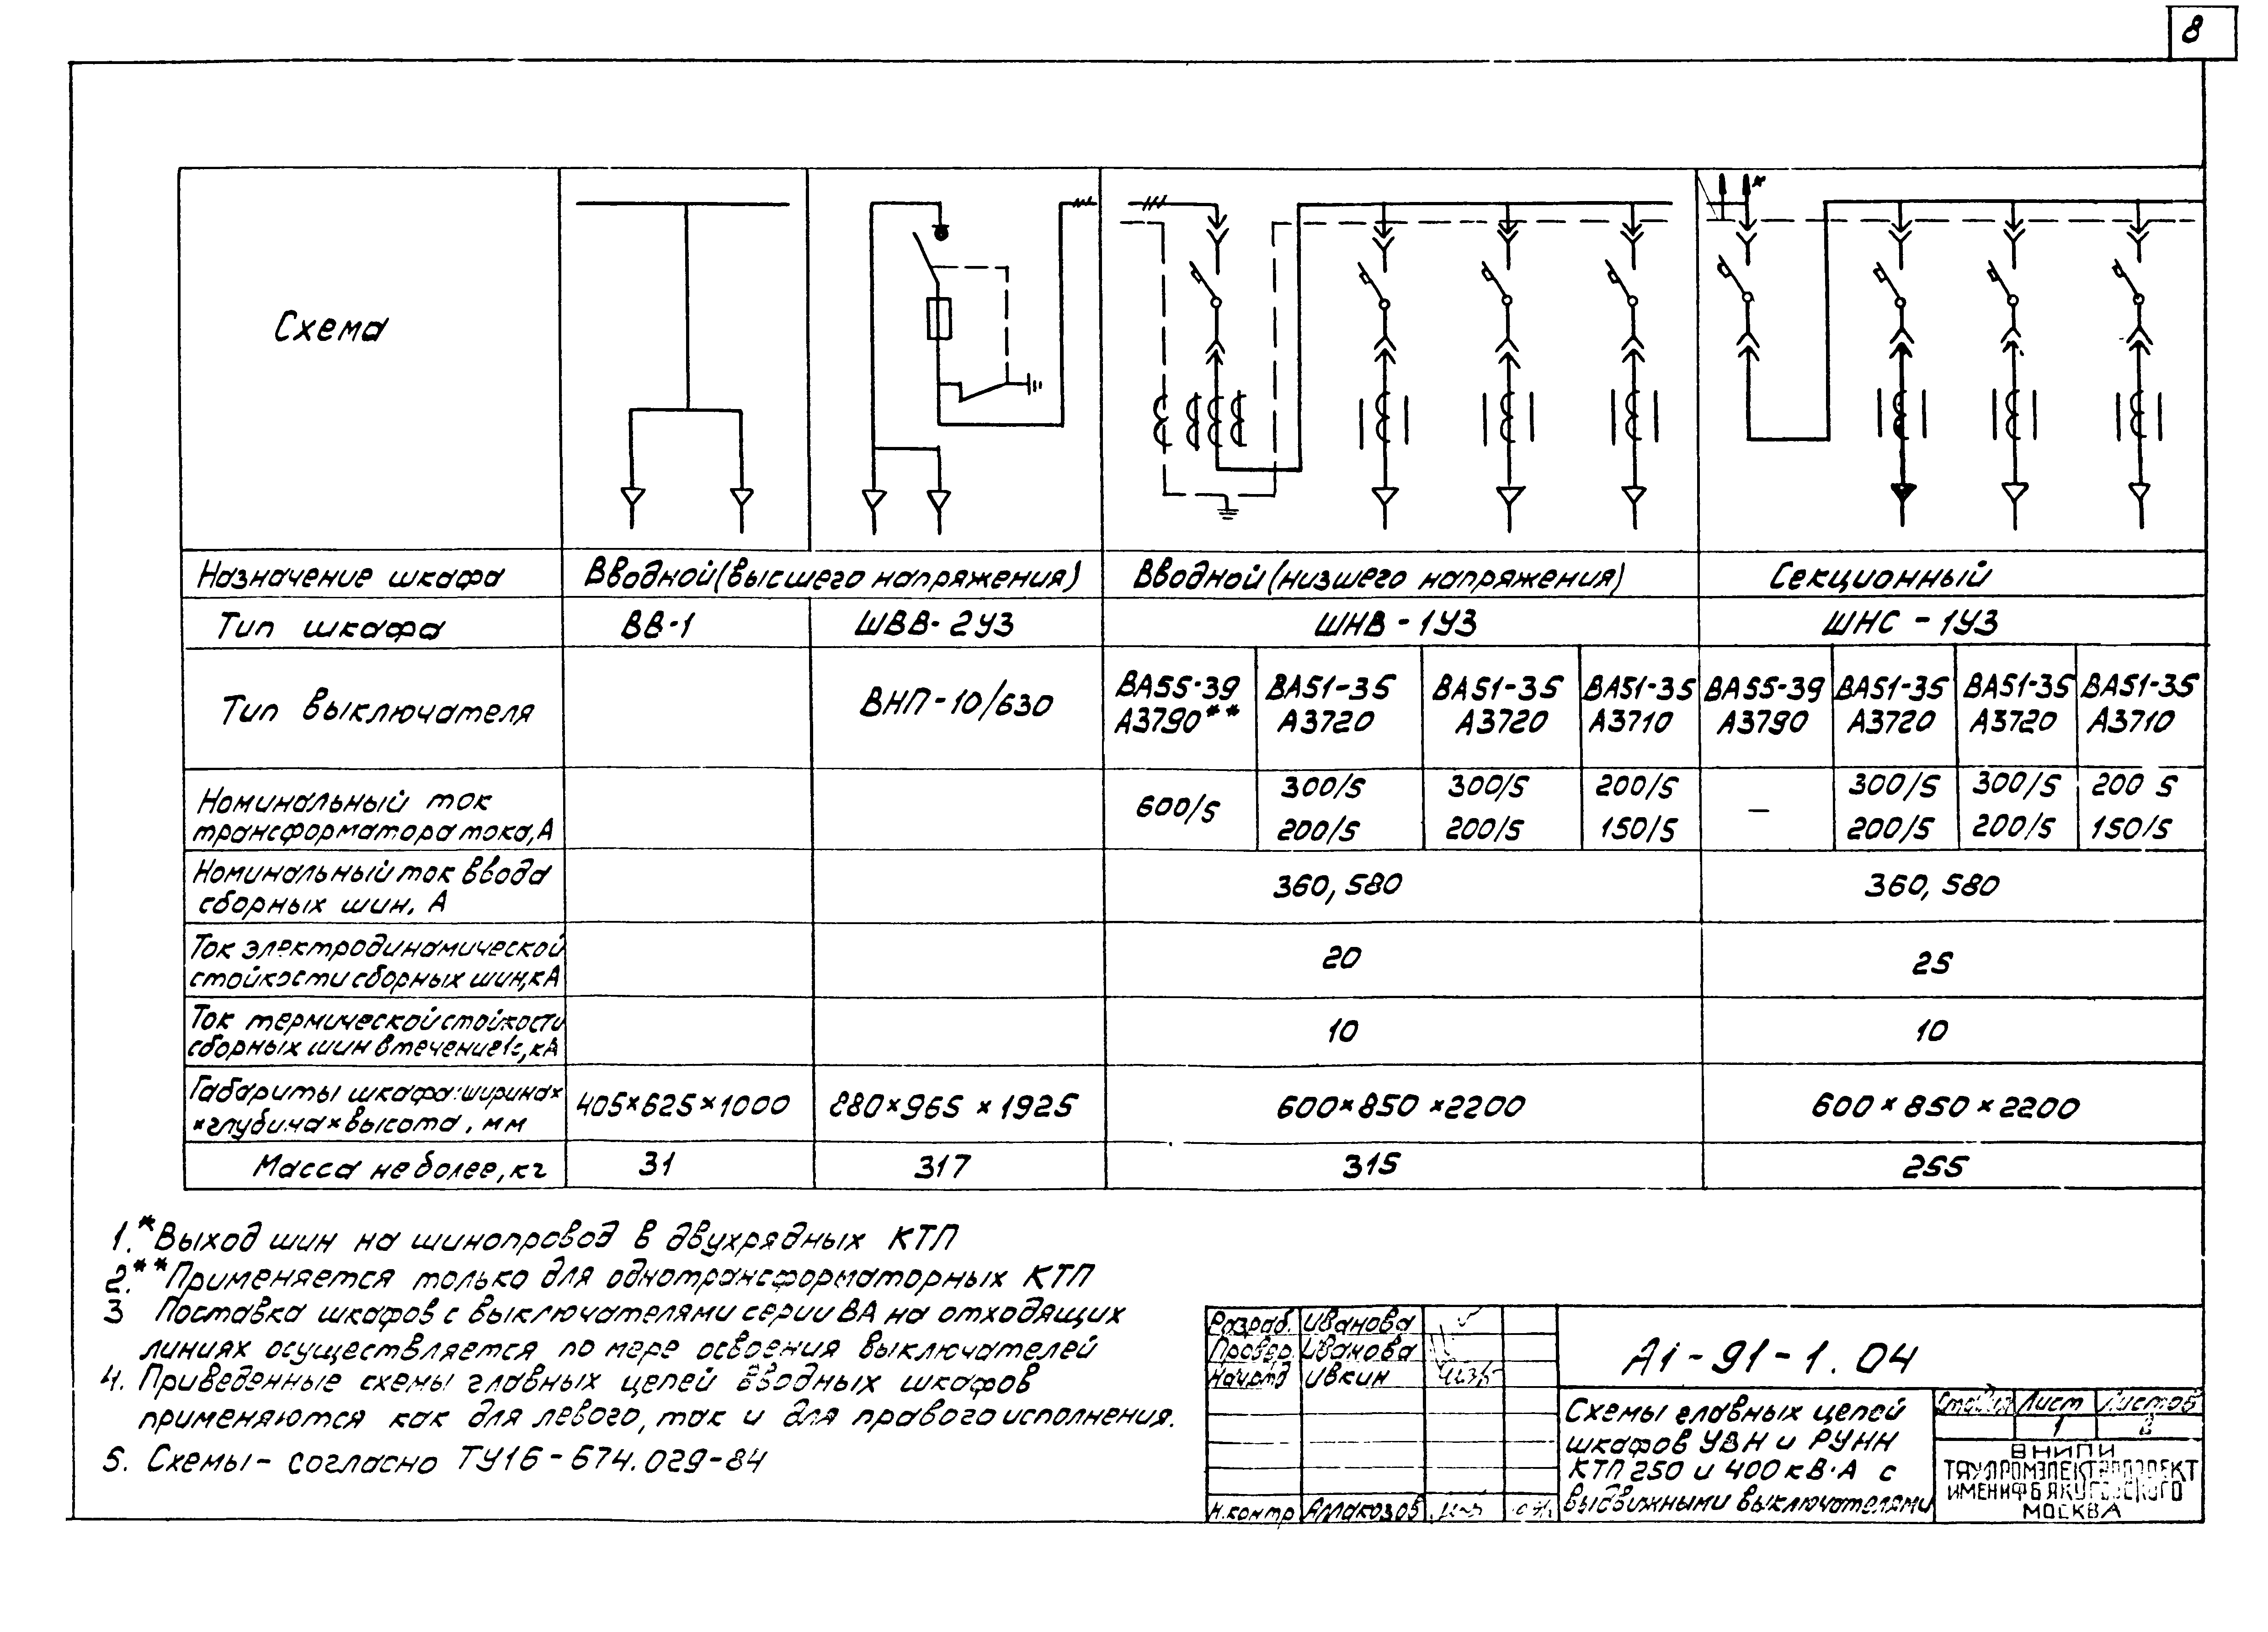 8
Схема
*
Назначение шкафа Вводной (высшего напряжения) Вводной (низшего напряжения) Секционный
Тип шкафа ВВ-1 ШВВ-2У3 ШНВ-1У3 ШНС-1У3
Тип выключателя ВНП-10/630
ВА55-39 ВА51-35 ВА51-35 ВА51-35 ВА55-39 ВА51-35 ВА51-35 ВА51-35
А3790** А3720 А3720 А3710 А3790 А3720 А3720 А3710
Номинальный ток
трансформатора тока, А
600/5 300/5 300/5 200/5 — 300/5 300/5 200 5
200/5 200/5 150/5 200/5 200/5 150/5
Номинальный ток ввода
сборных шин, А
360, 580 360, 580
Ток электродинамической
стойкости сборных шин, кА
20 25
Ток термической стойкости
сборных шин в течение 1с, кА
10 10
Габариты шкафа: ширина×
×глубина×высота, мм
405×625×1000 880×965×1925 600×850×2200 600×850×2200
Масса не более, кг 31 317 315 255
1.*Выход шин на шинопровод в двухрядных КТП
2.**Применяется только для однотрансформаторных КТП
3 Поставка шкафов с выключателями серии ВА на отходящих
линиях осуществляется по мере освоения выключателей
4. Приведенные схемы главных цепей вводных шкафов
применяются как для левого, так и для правого исполнения.
5. Схемы - согласно ТУ16-674.029-84
Разраб. Иванова
Провер. Иванова
Нач.отд Ивкин
Н.контр Аллакозов
А1-91-1.04
Схемы главных цепей
шкафов УВН и РУНН
КТП 250 и 400 кВ·А с
выдвижными выключателями
Стадия Лист Листов
1
ВНИПИ
ТЯЖПРОМЭЛЕКТРОПРОЕКТ
ИМЕНИ Ф Б ЯКУБОВСКОГО
МОСКВА